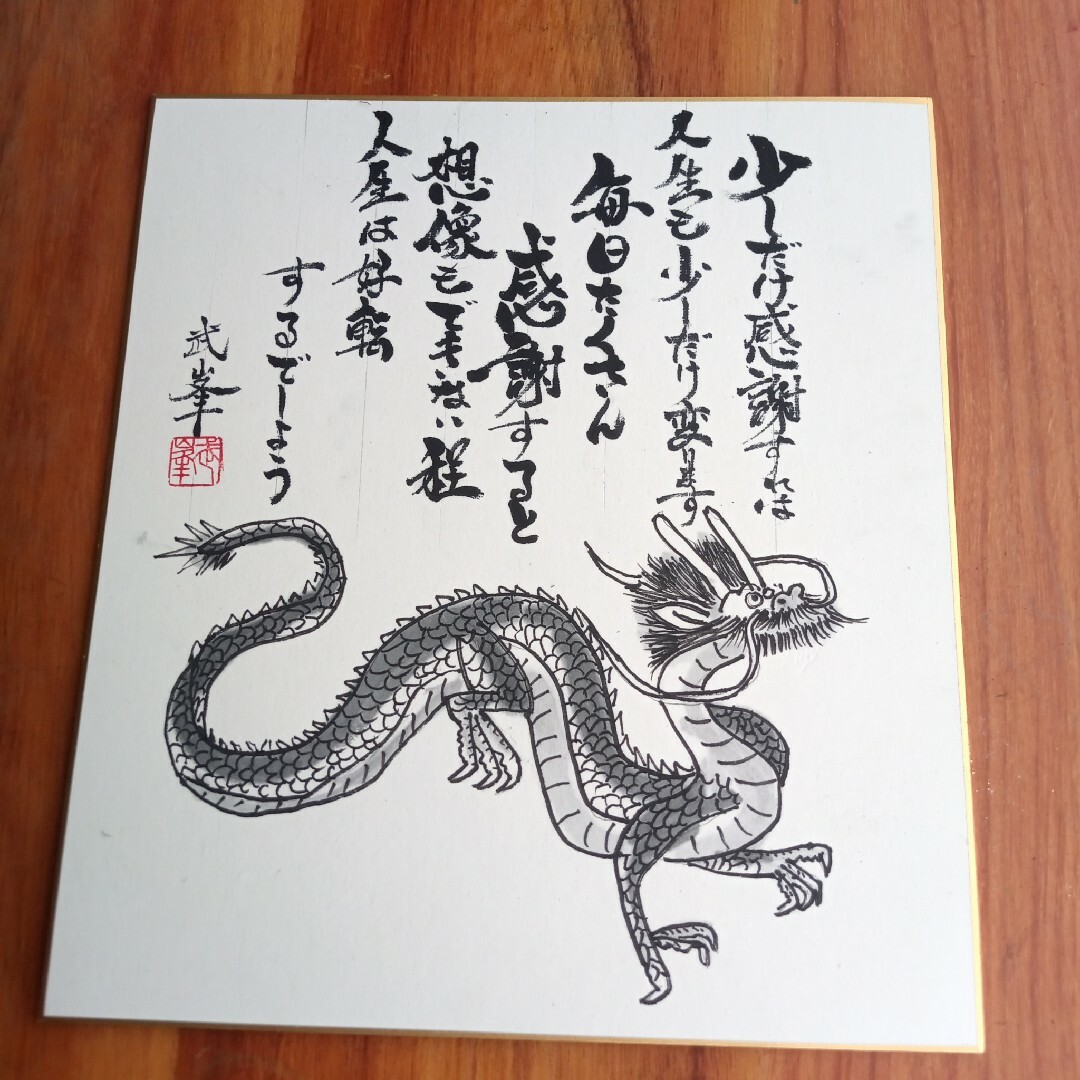 少しだけ感謝すれば
人生も少しだけ変ります
毎日たくさん
感謝すると
想像もできない程
人生は好転
するでしょう
武峯
武峯